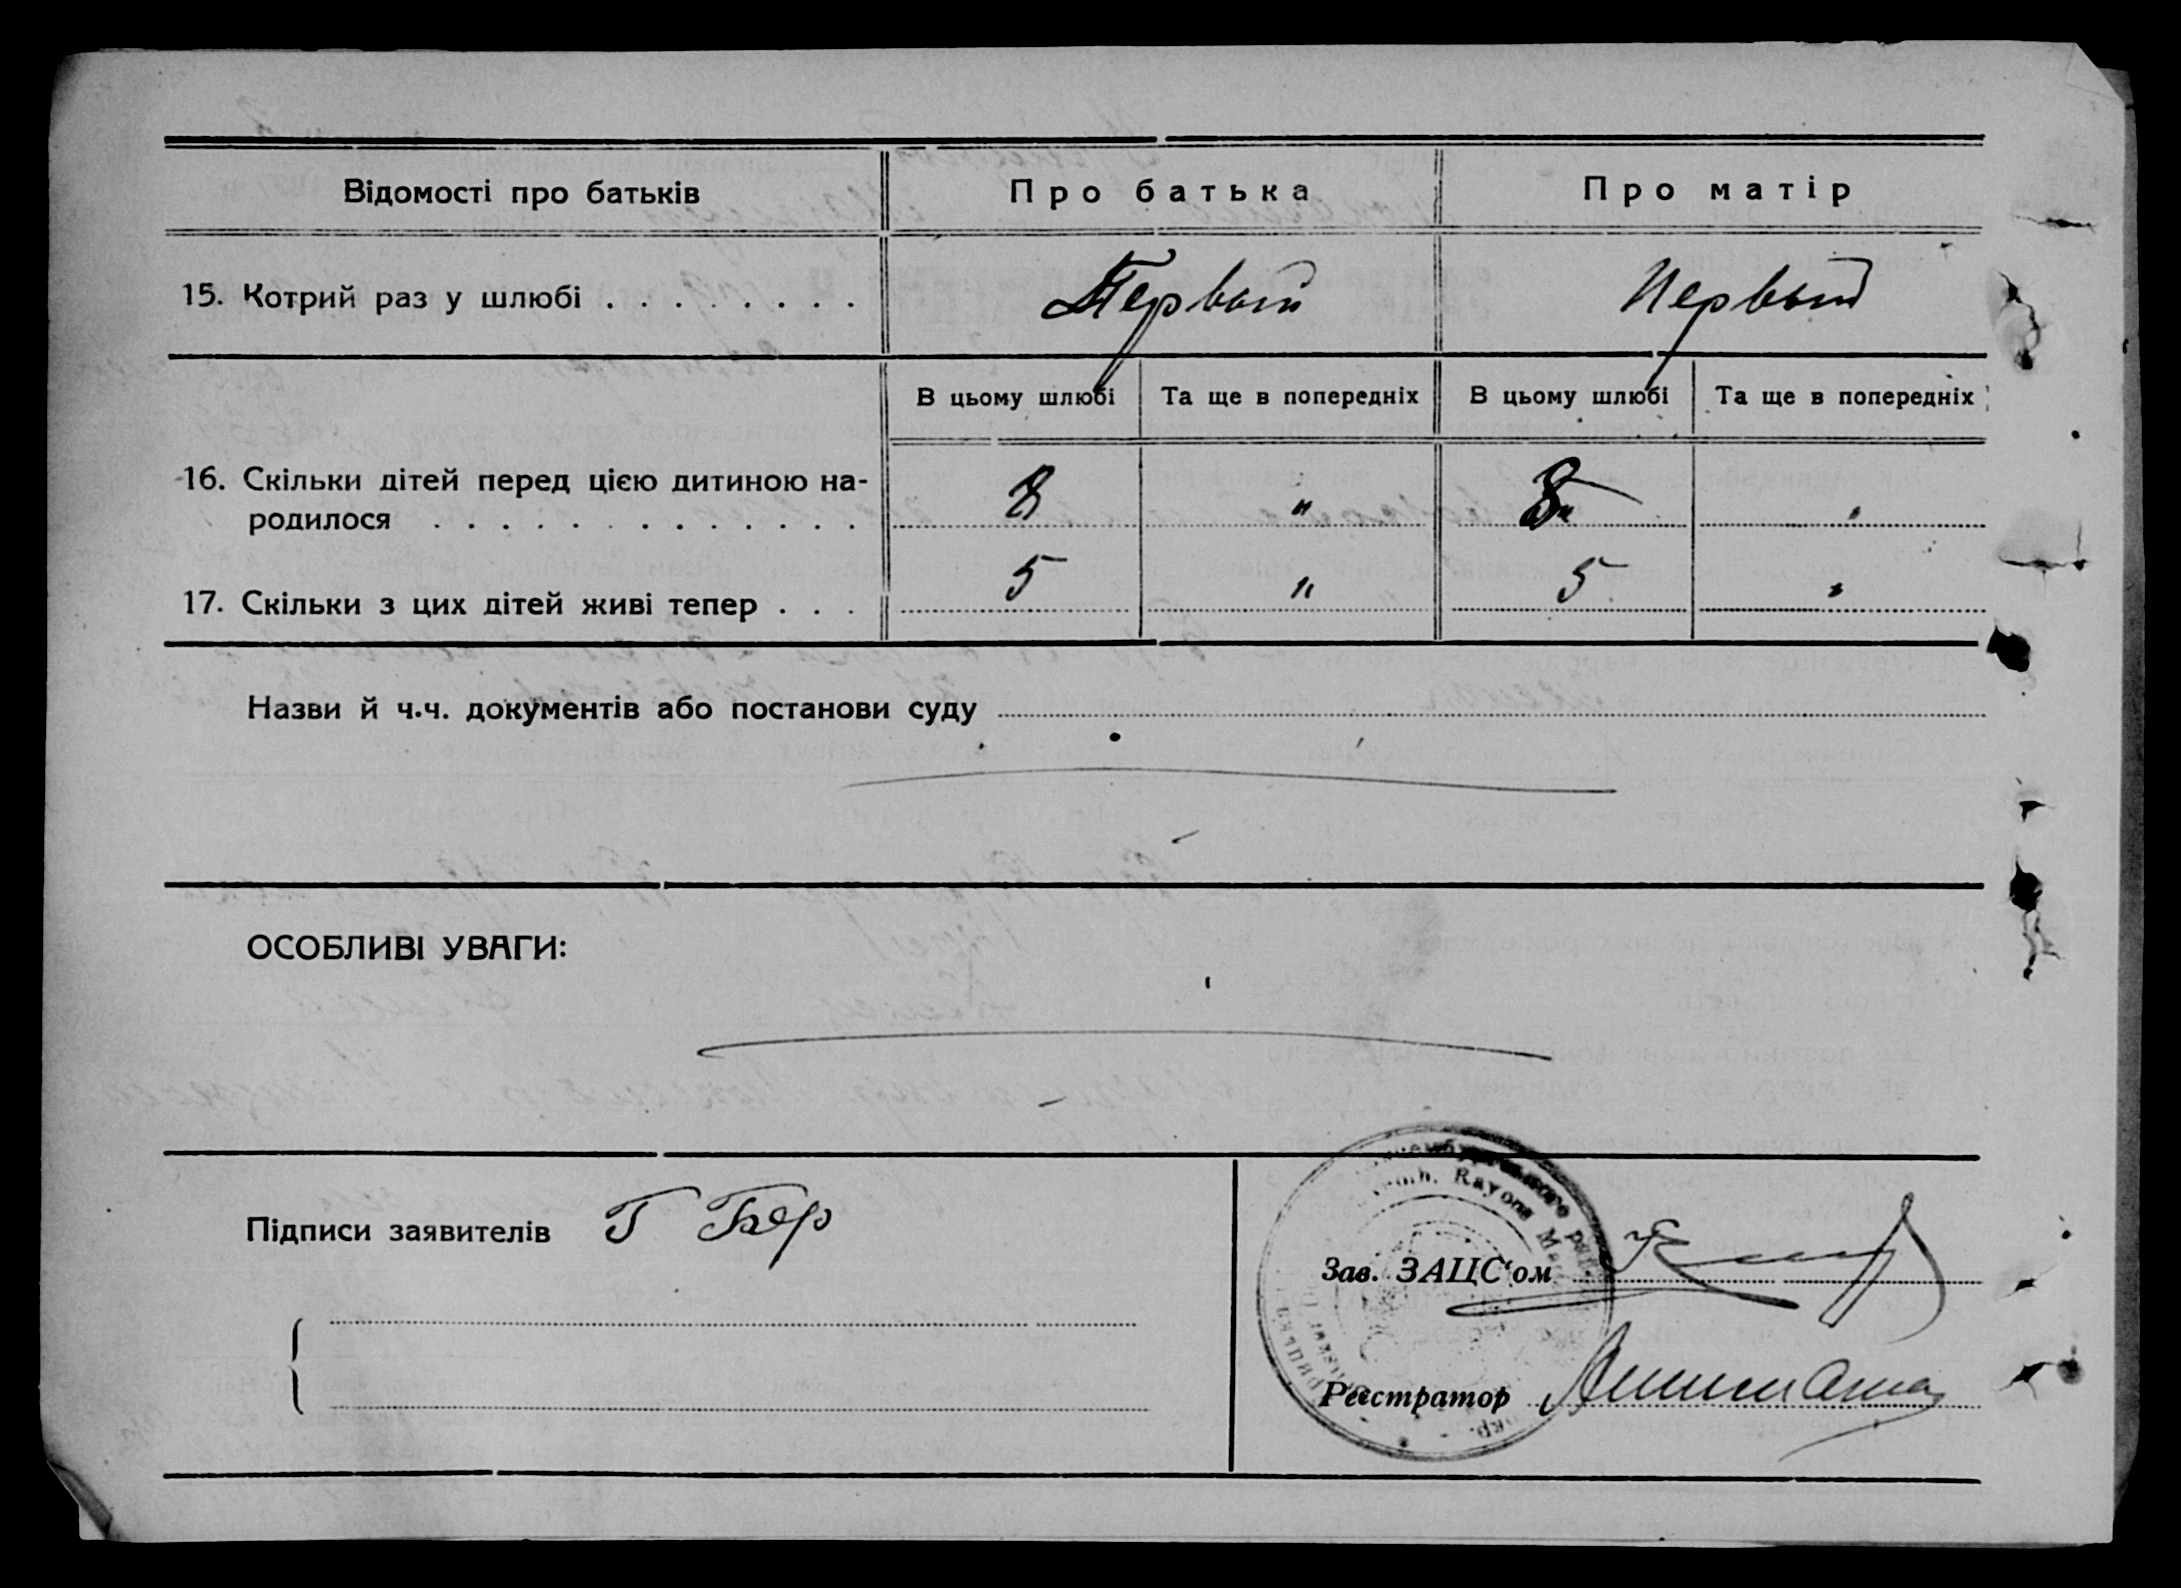 Відомості про батьків
Про батька
Про матір
15. Котрий раз у шлюбі . . . . . . . .
Первый
Первый
В цьому шлюбі
Та ще в попередніх
В цьому шлюбі
Та ще в попередніх
16. Скільки дітей перед цією дитиною на-
родилося . . . . . . . . . . . . .
8
"
8
"
17. Скільки з цих дітей живі тепер . . .
5
"
5
"
Назви й ч.ч. документів або постанови суду
ОСОБЛИВІ УВАГИ:
Підписи заявителів Г Бер
Зав. ЗАЦС'ом
Реєстратор
Rayona